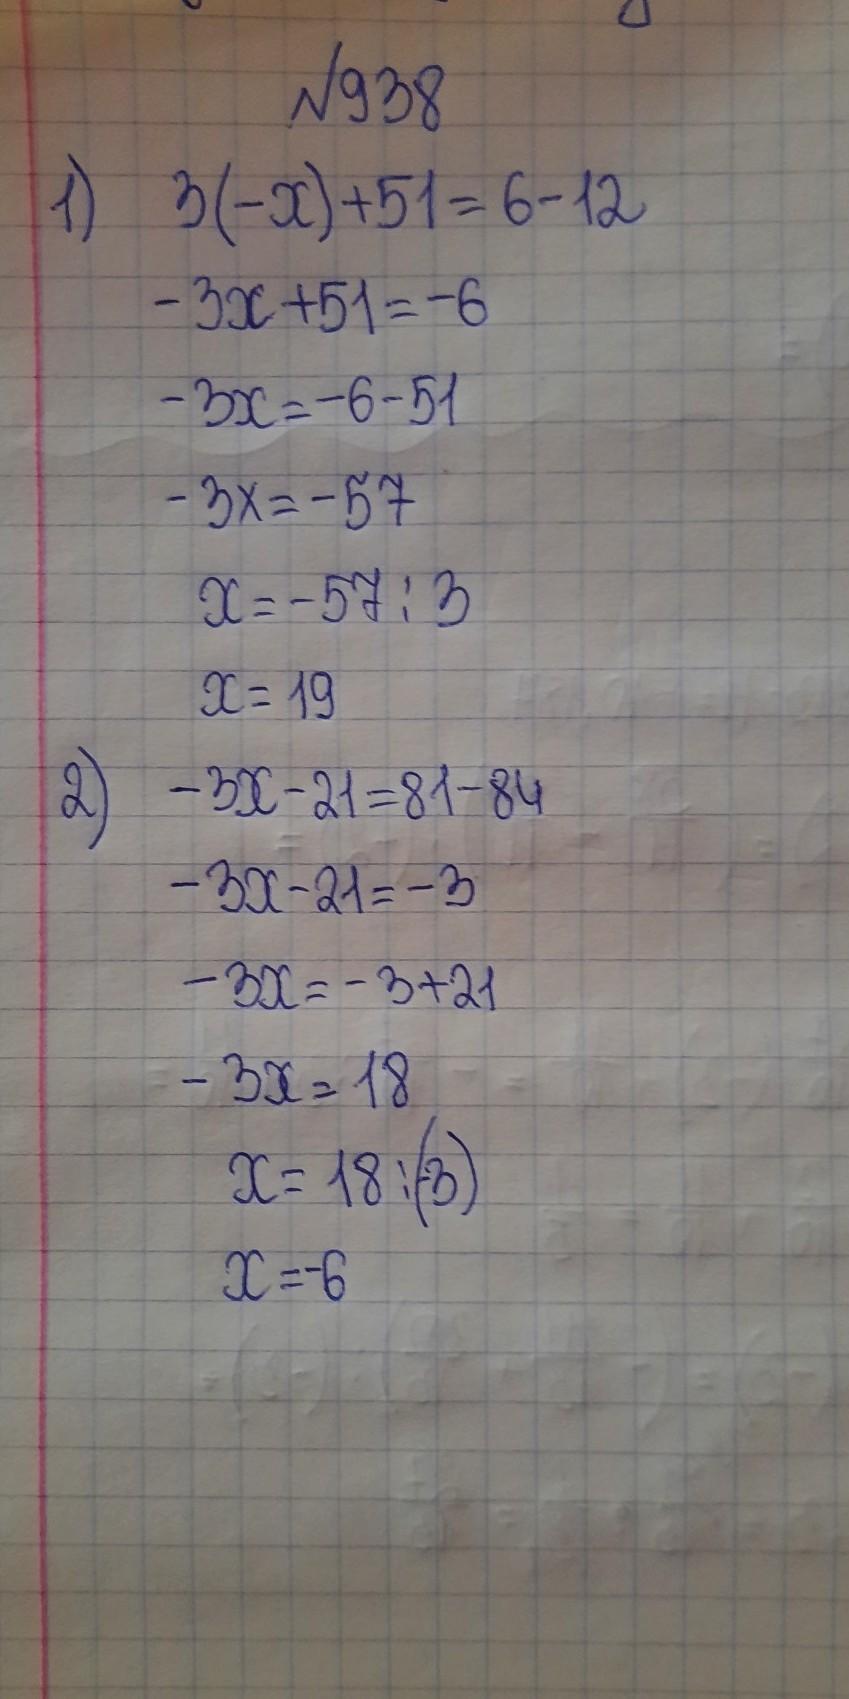 №938
1) 3(-x)+51=6-12
-3x+51=-6
-3x=-6-51
-3x=-57
x=-57:3
x=19
2) -3x-21=81-84
-3x-21=-3
-3x=-3+21
-3x=18
x=18:(-3)
x=-6